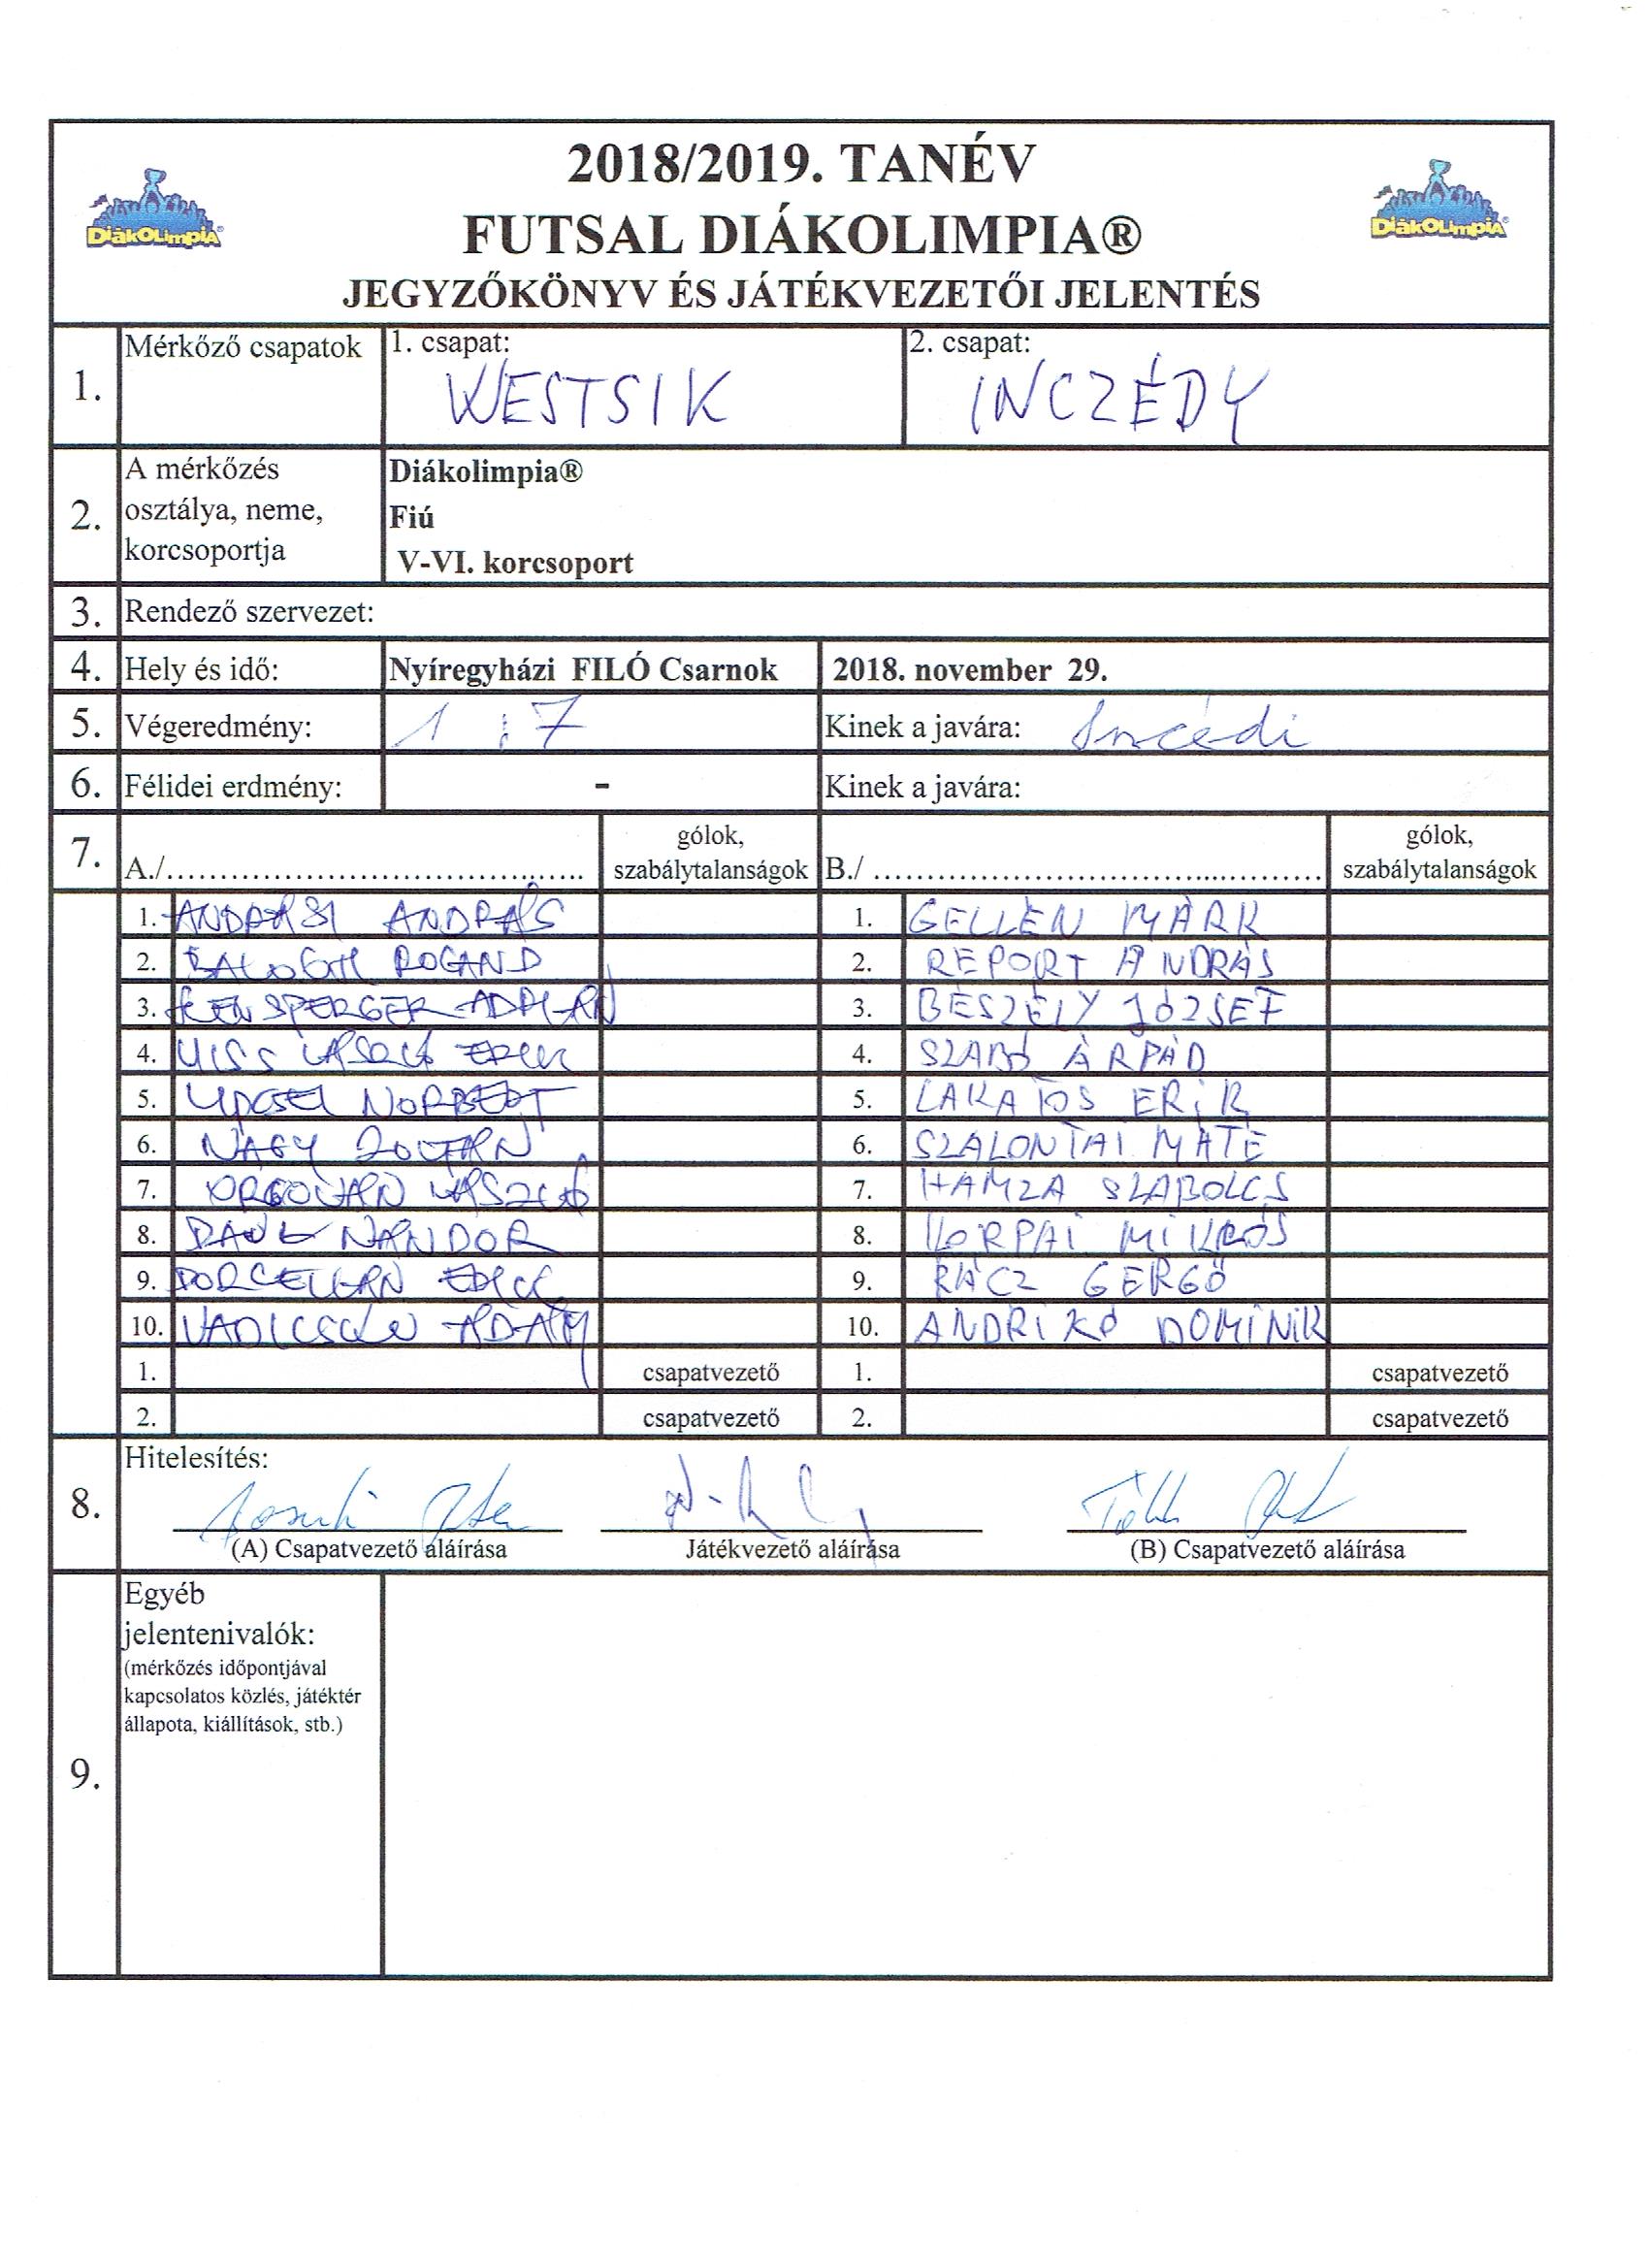 2018/2019. TANÉV
FUTSAL DIÁKOLIMPIA®
JEGYZŐKÖNYV ÉS JÁTÉKVEZETŐI JELENTÉS
DiákOLimpiA®
DiákOLimpiA®
1. Mérkőző csapatok 1. csapat: 2. csapat:
WESTSIK INCZÉDY
2. A mérkőzés osztálya, neme, korcsoportja
Diákolimpia®
Fiú
V-VI. korcsoport
3. Rendező szervezet:
4. Hely és idő: Nyíregyházi FILÓ Csarnok 2018. november 29.
5. Végeredmény: 1 : 7 Kinek a javára: Incédi
6. Félidei erdmény: - Kinek a javára:
7. A./ gólok, szabálytalanságok B./ gólok, szabálytalanságok
1. ANDRÁSI ANDRÁS 1. GELLÉN MÁRK
2. BALOGH ROLAND 2. REPORT ANDRÁS
3. 3. BESZÉLY JÓZSEF
4. 4. SZABÓ ÁRPÁD
5. NORBERT 5. LAKATOS ERIK
6. NAGY ZOLTÁN 6. SZALONTAI MÁTÉ
7. ORGOVÁN LÁSZLÓ 7. HAMZA SZABOLCS
8. NÁNDOR 8. KORPAI MIKLÓS
9. 9. RÁCZ GERGŐ
10. ÁDÁM 10. ANDRIKÓ DOMINIK
1. csapatvezető 1. csapatvezető
2. csapatvezető 2. csapatvezető
8. Hitelesítés:
Tóth
(A) Csapatvezető aláírása Játékvezető aláírása (B) Csapatvezető aláírása
9. Egyéb
jelentenivalók:
(mérkőzés időpontjával
kapcsolatos közlés, játéktér
állapota, kiállítások, stb.)